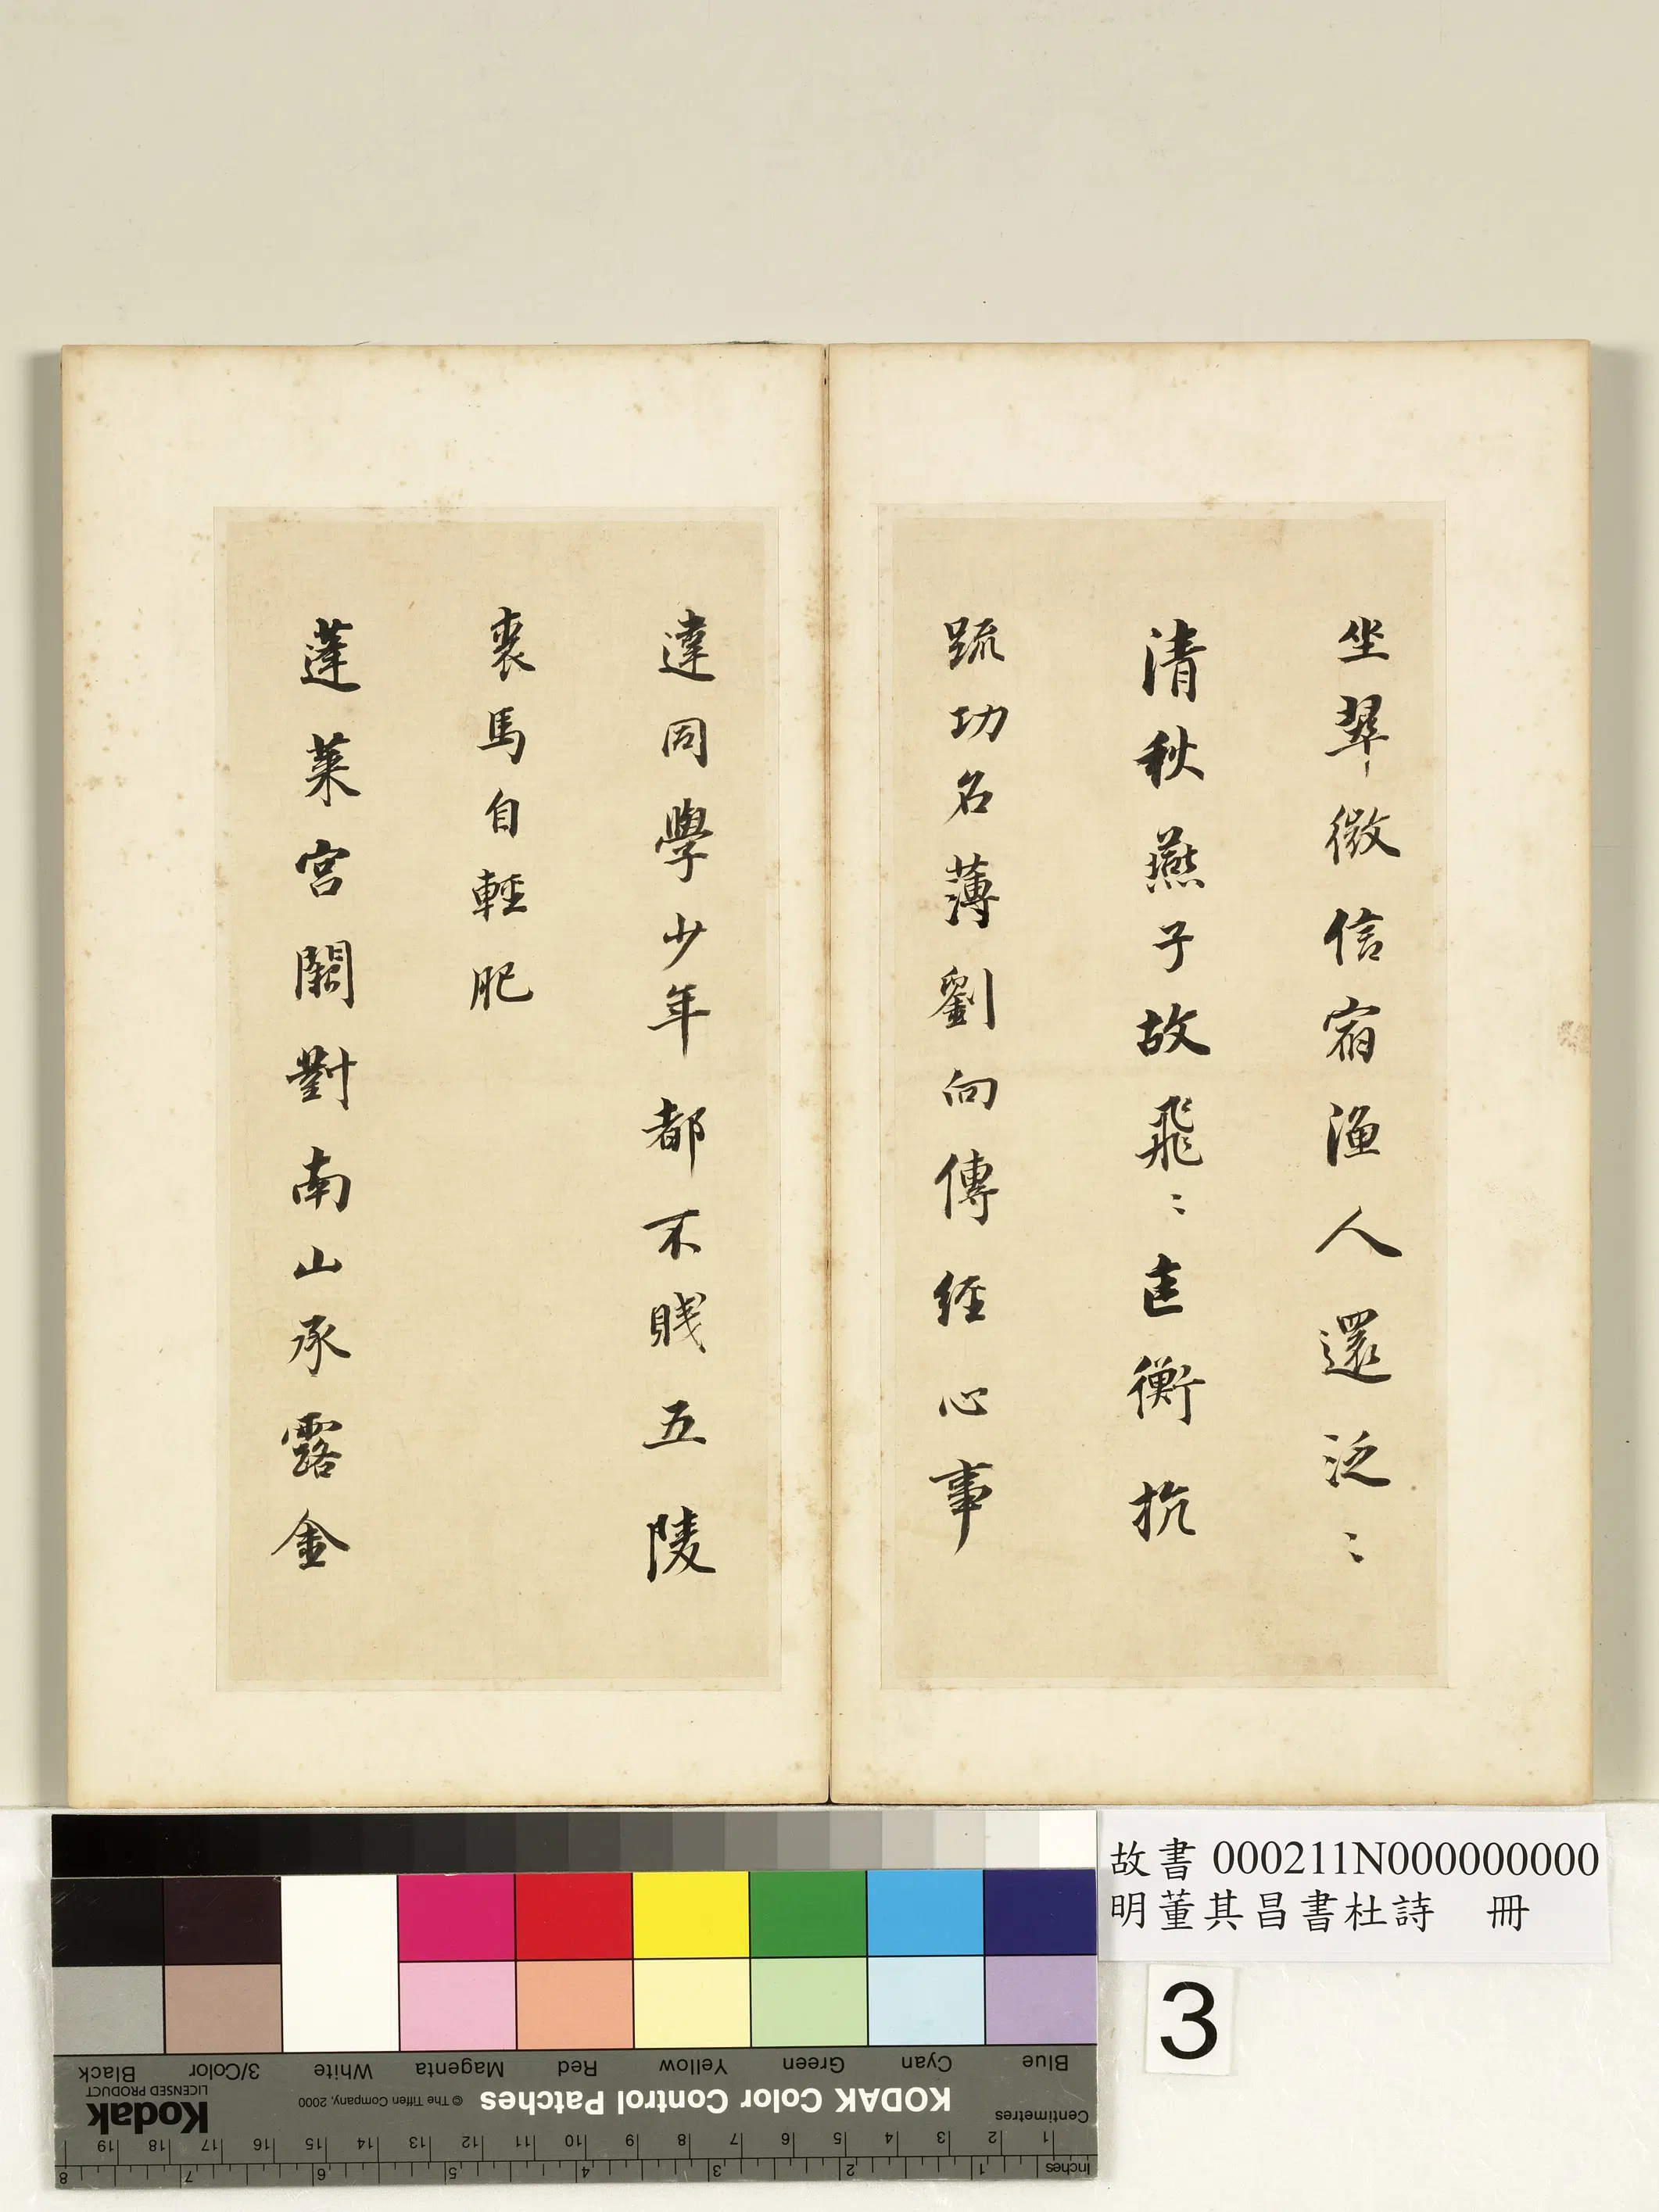 坐翠微信宿漁人還泛〻
清秋燕子故飛〻匡衡抗
疏功名薄劉向傳經心事
違同學少年都不賤五陵
裘馬自輕肥
蓬萊宮闕對南山承露金
故書 000211N000000000
明董其昌書杜詩 冊
3
Blue Cyan Green Yellow Red Magenta White 3/Color Black
KODAK Color Control Patches © The Tiffen Company, 2000 Kodak LICENSED PRODUCT
Centimetres 1 2 3 4 5 6 7 8 9 10 11 12 13 14 15 16 17 18 19
Inches 1 2 3 4 5 6 7 8